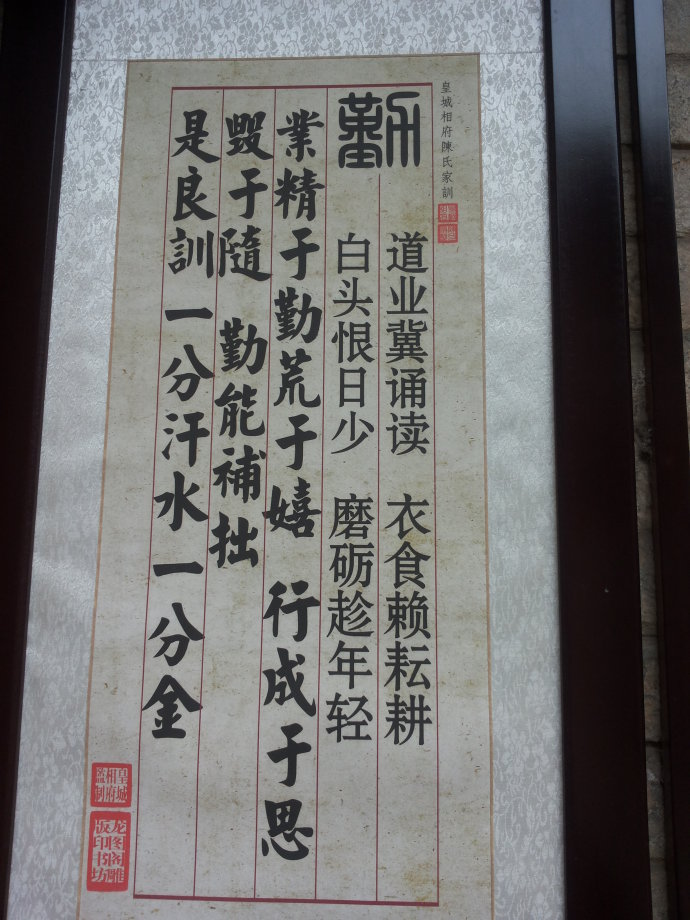 皇城相府陳氏家訓
勤
道业冀诵读 衣食赖耘耕
白头恨日少 磨砺趁年轻
業精于勤荒于嬉 行成于思
毁于隨 勤能補拙
是良訓 一分汗水一分金
皇城
相府
監制
龙图阁雕
版印书坊